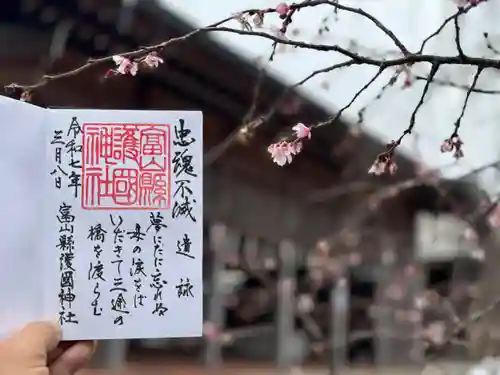 忠魂不滅
遺詠
夢にだに忘れぬ
母の涙をば
いだきて三途の
橋を渡らむ
富山縣
護國
神社
令和七年
三月八日
富山縣護國神社